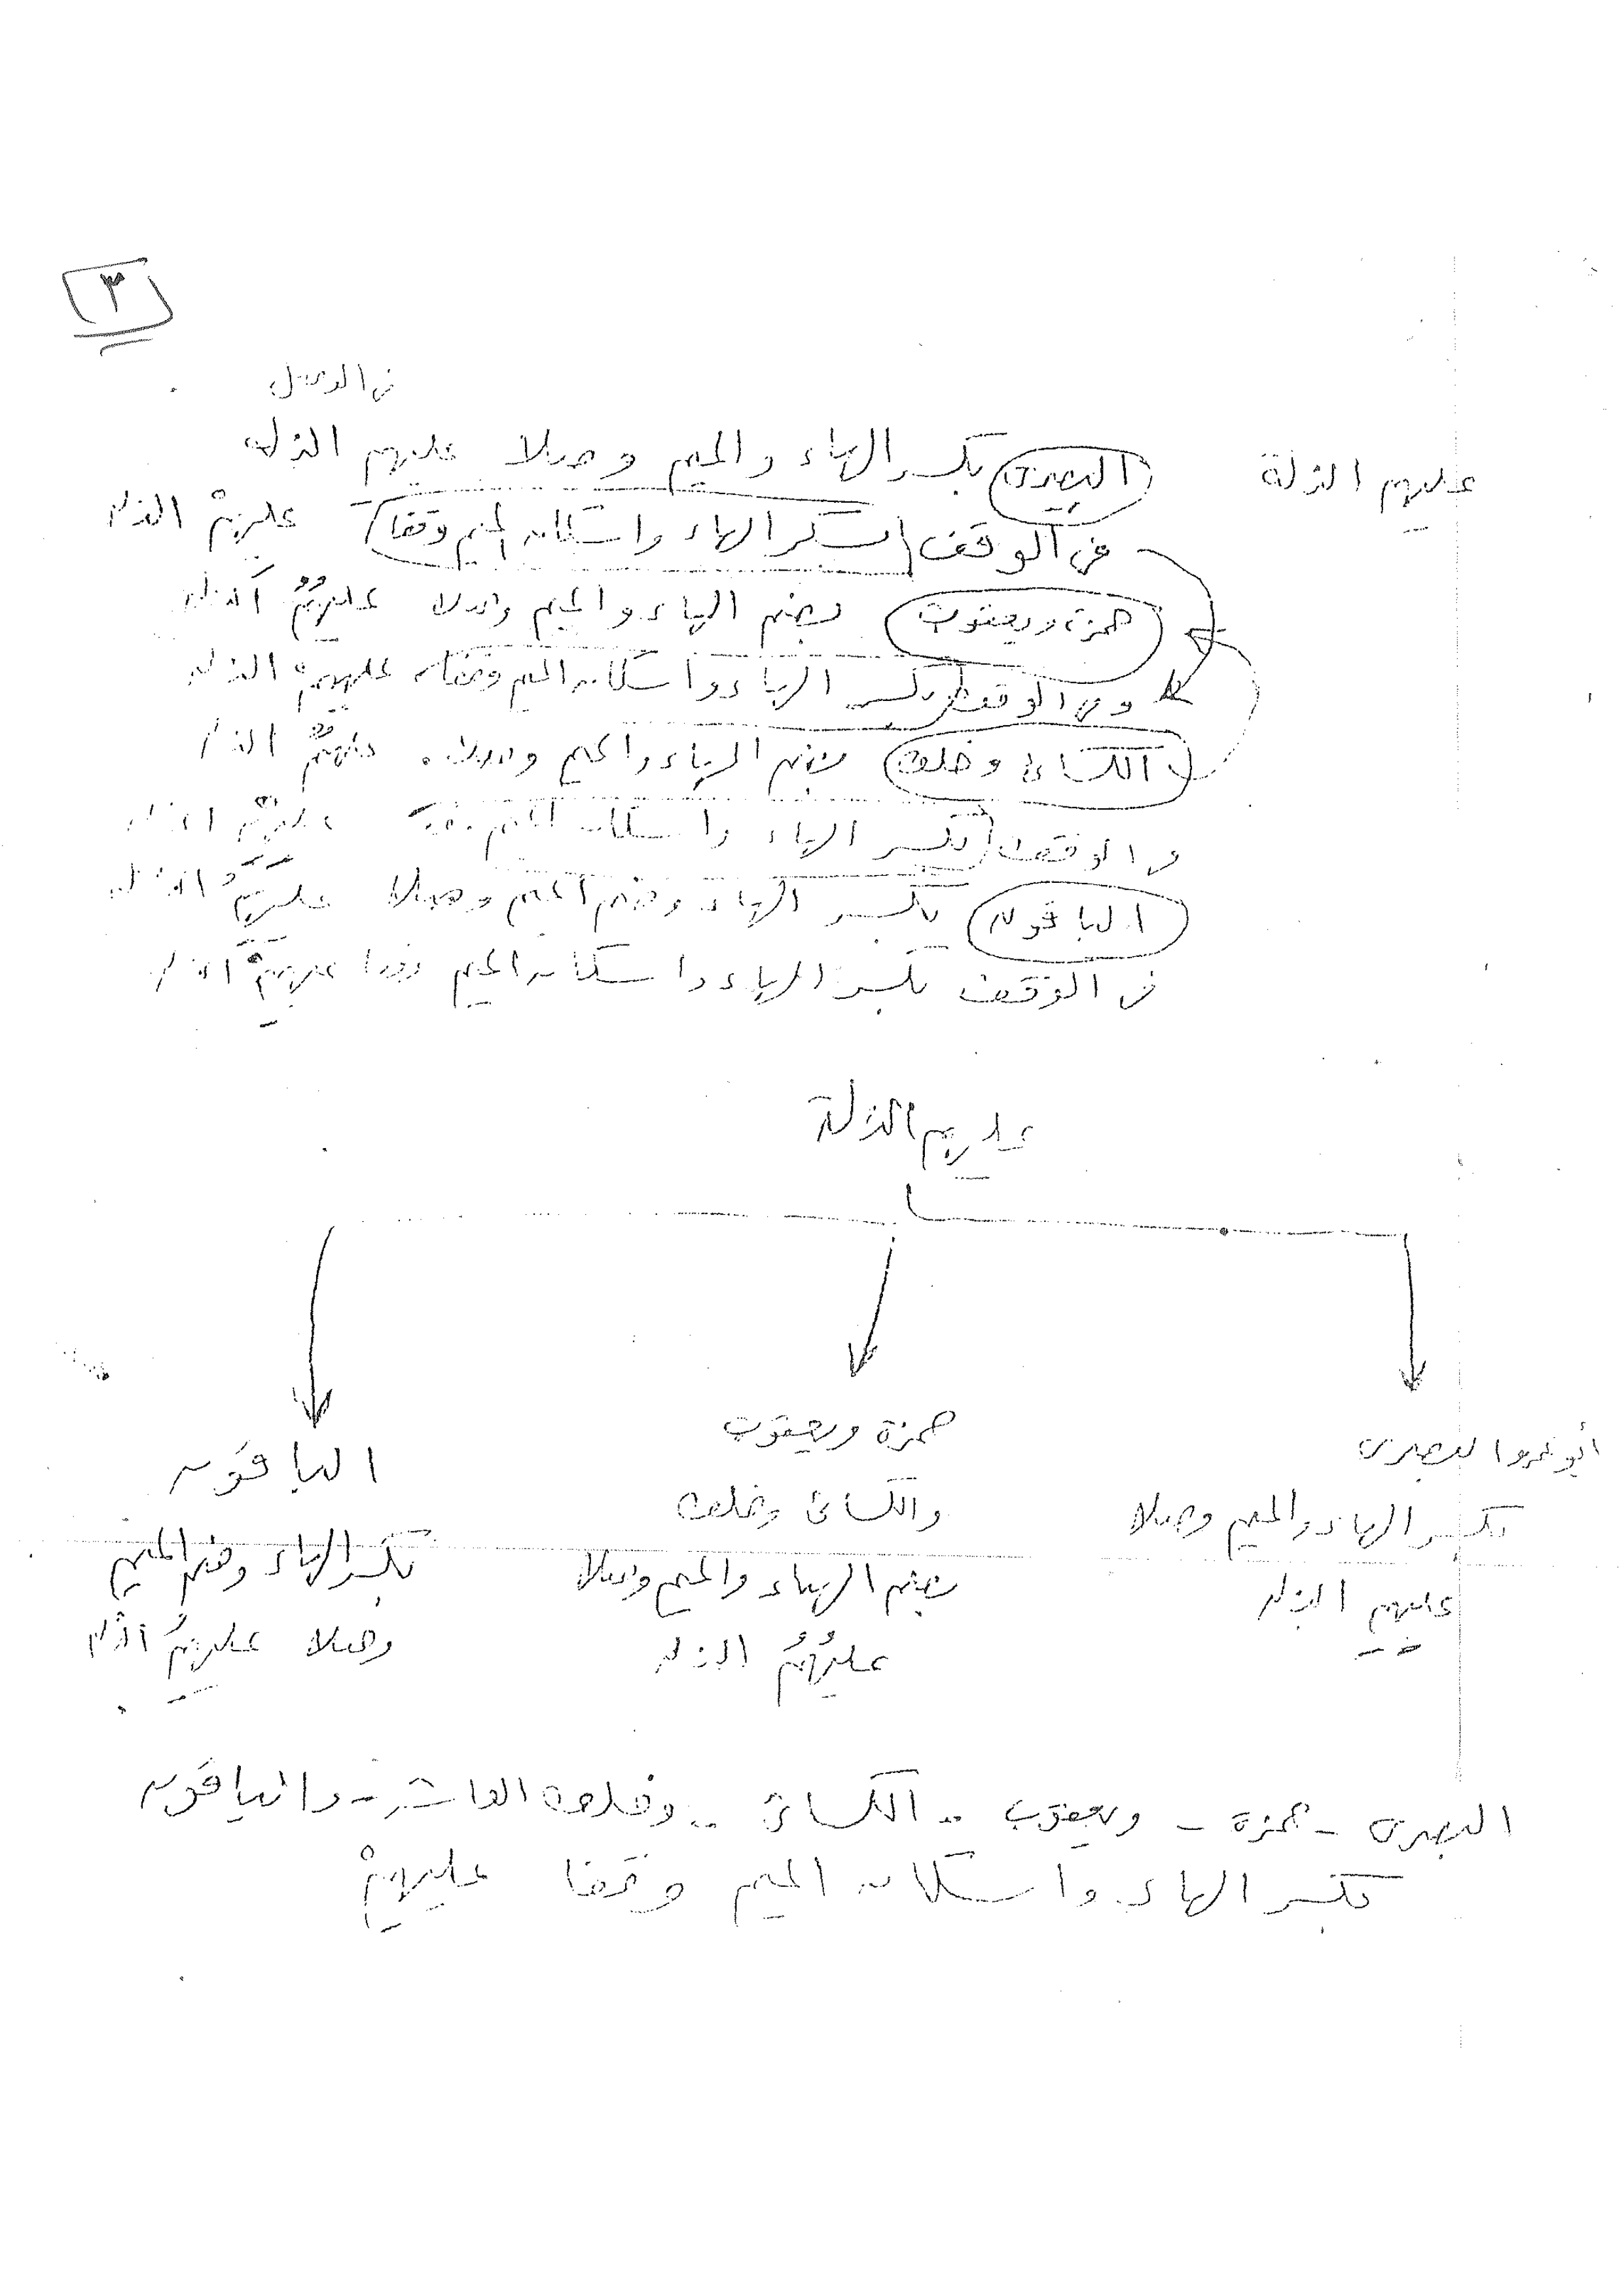 ٣
في الوصل
عليهم الذلة البصرى بكسر الهاء والميم وصلا عليهم الذلة
في الوقف بكسر الهاء واسكان الميم وقفا عليهمْ الذلة
حمزة ويعقوب بضم الهاء والميم وصلا عليهُمُ الذلة
وفي الوقف بكسر الهاء واسكان الميم وقفا عليهمْ الذلة
الكسائى وخلف بضم الهاء والميم وصلا عليهُمُ الذلة
في الوقف بكسر الهاء واسكان الميم وقفا عليهمْ الذلة
الباقون بكسر الهاء وضم الميم وصلا عليهِمُ الذلة
في الوقف بكسر الهاء واسكان الميم وقفا عليهِمْ الذلة
عليهم الذلة
أبو عمرو البصرى
بكسر الهاء والميم وصلا
عليهم الذلة
حمزة ويعقوب
والكسائى وخلف
بضم الهاء والميم وصلا
عليهُمُ الذلة
الباقون
بكسر الهاء وضم الميم
وصلا عليهِمُ الذلة
البصرى - حمزة - ويعقوب - الكسائى - وخلف العاشر - والباقون
بكسر الهاء واسكان الميم وقفا عليهِمْ